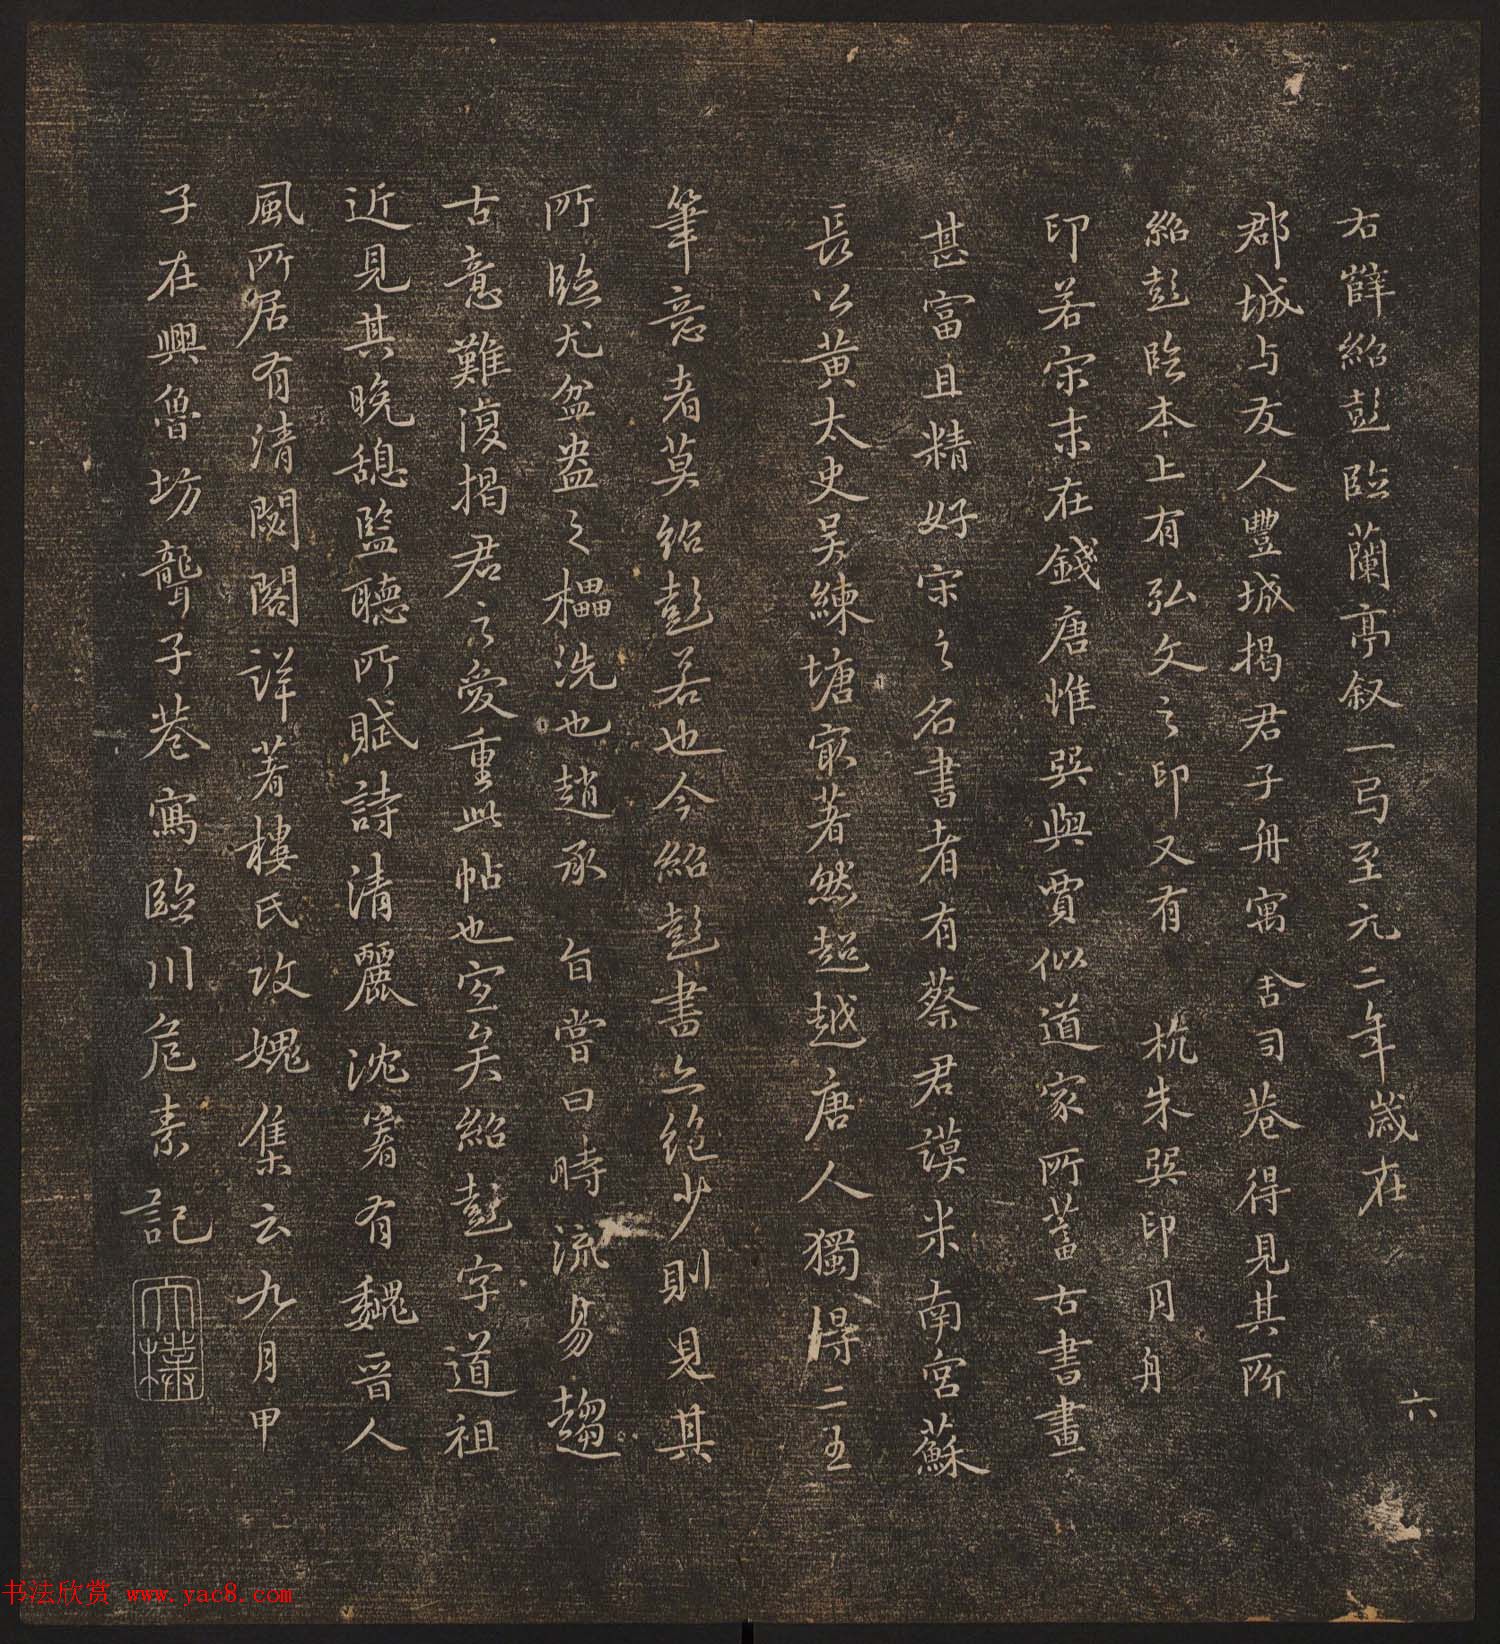 右薛紹彭臨蘭亭叙一弓至元二年歲在
郡城与友人豐城揭君子舟寓舍司巷得見其所
紹彭臨本上有弘文之印又有 杭朱巽印月舟
印若宋末在錢唐惟巽與賈似道家所蓄古書畫
甚富且精好宋之名書者有蔡君謨米南宮蘇
長公黄太史吴練塘㝡著然超越唐人獨得二王
筆意者莫紹彭若也今紹彭書亦絶少則見其
所臨尤盆盎之櫑洗也趙承旨嘗曰時流易趨
古意難復揭君之愛重此帖也宜矣紹彭字道祖
近見其晚憩監聽所賦詩清麗沈著有魏晋人
風所居有清閟閣詳著樓氏攻媿集云九月甲
子在興魯坊聾子巷寓臨川危素記
六
太樸
书法欣赏 www.yac8.com